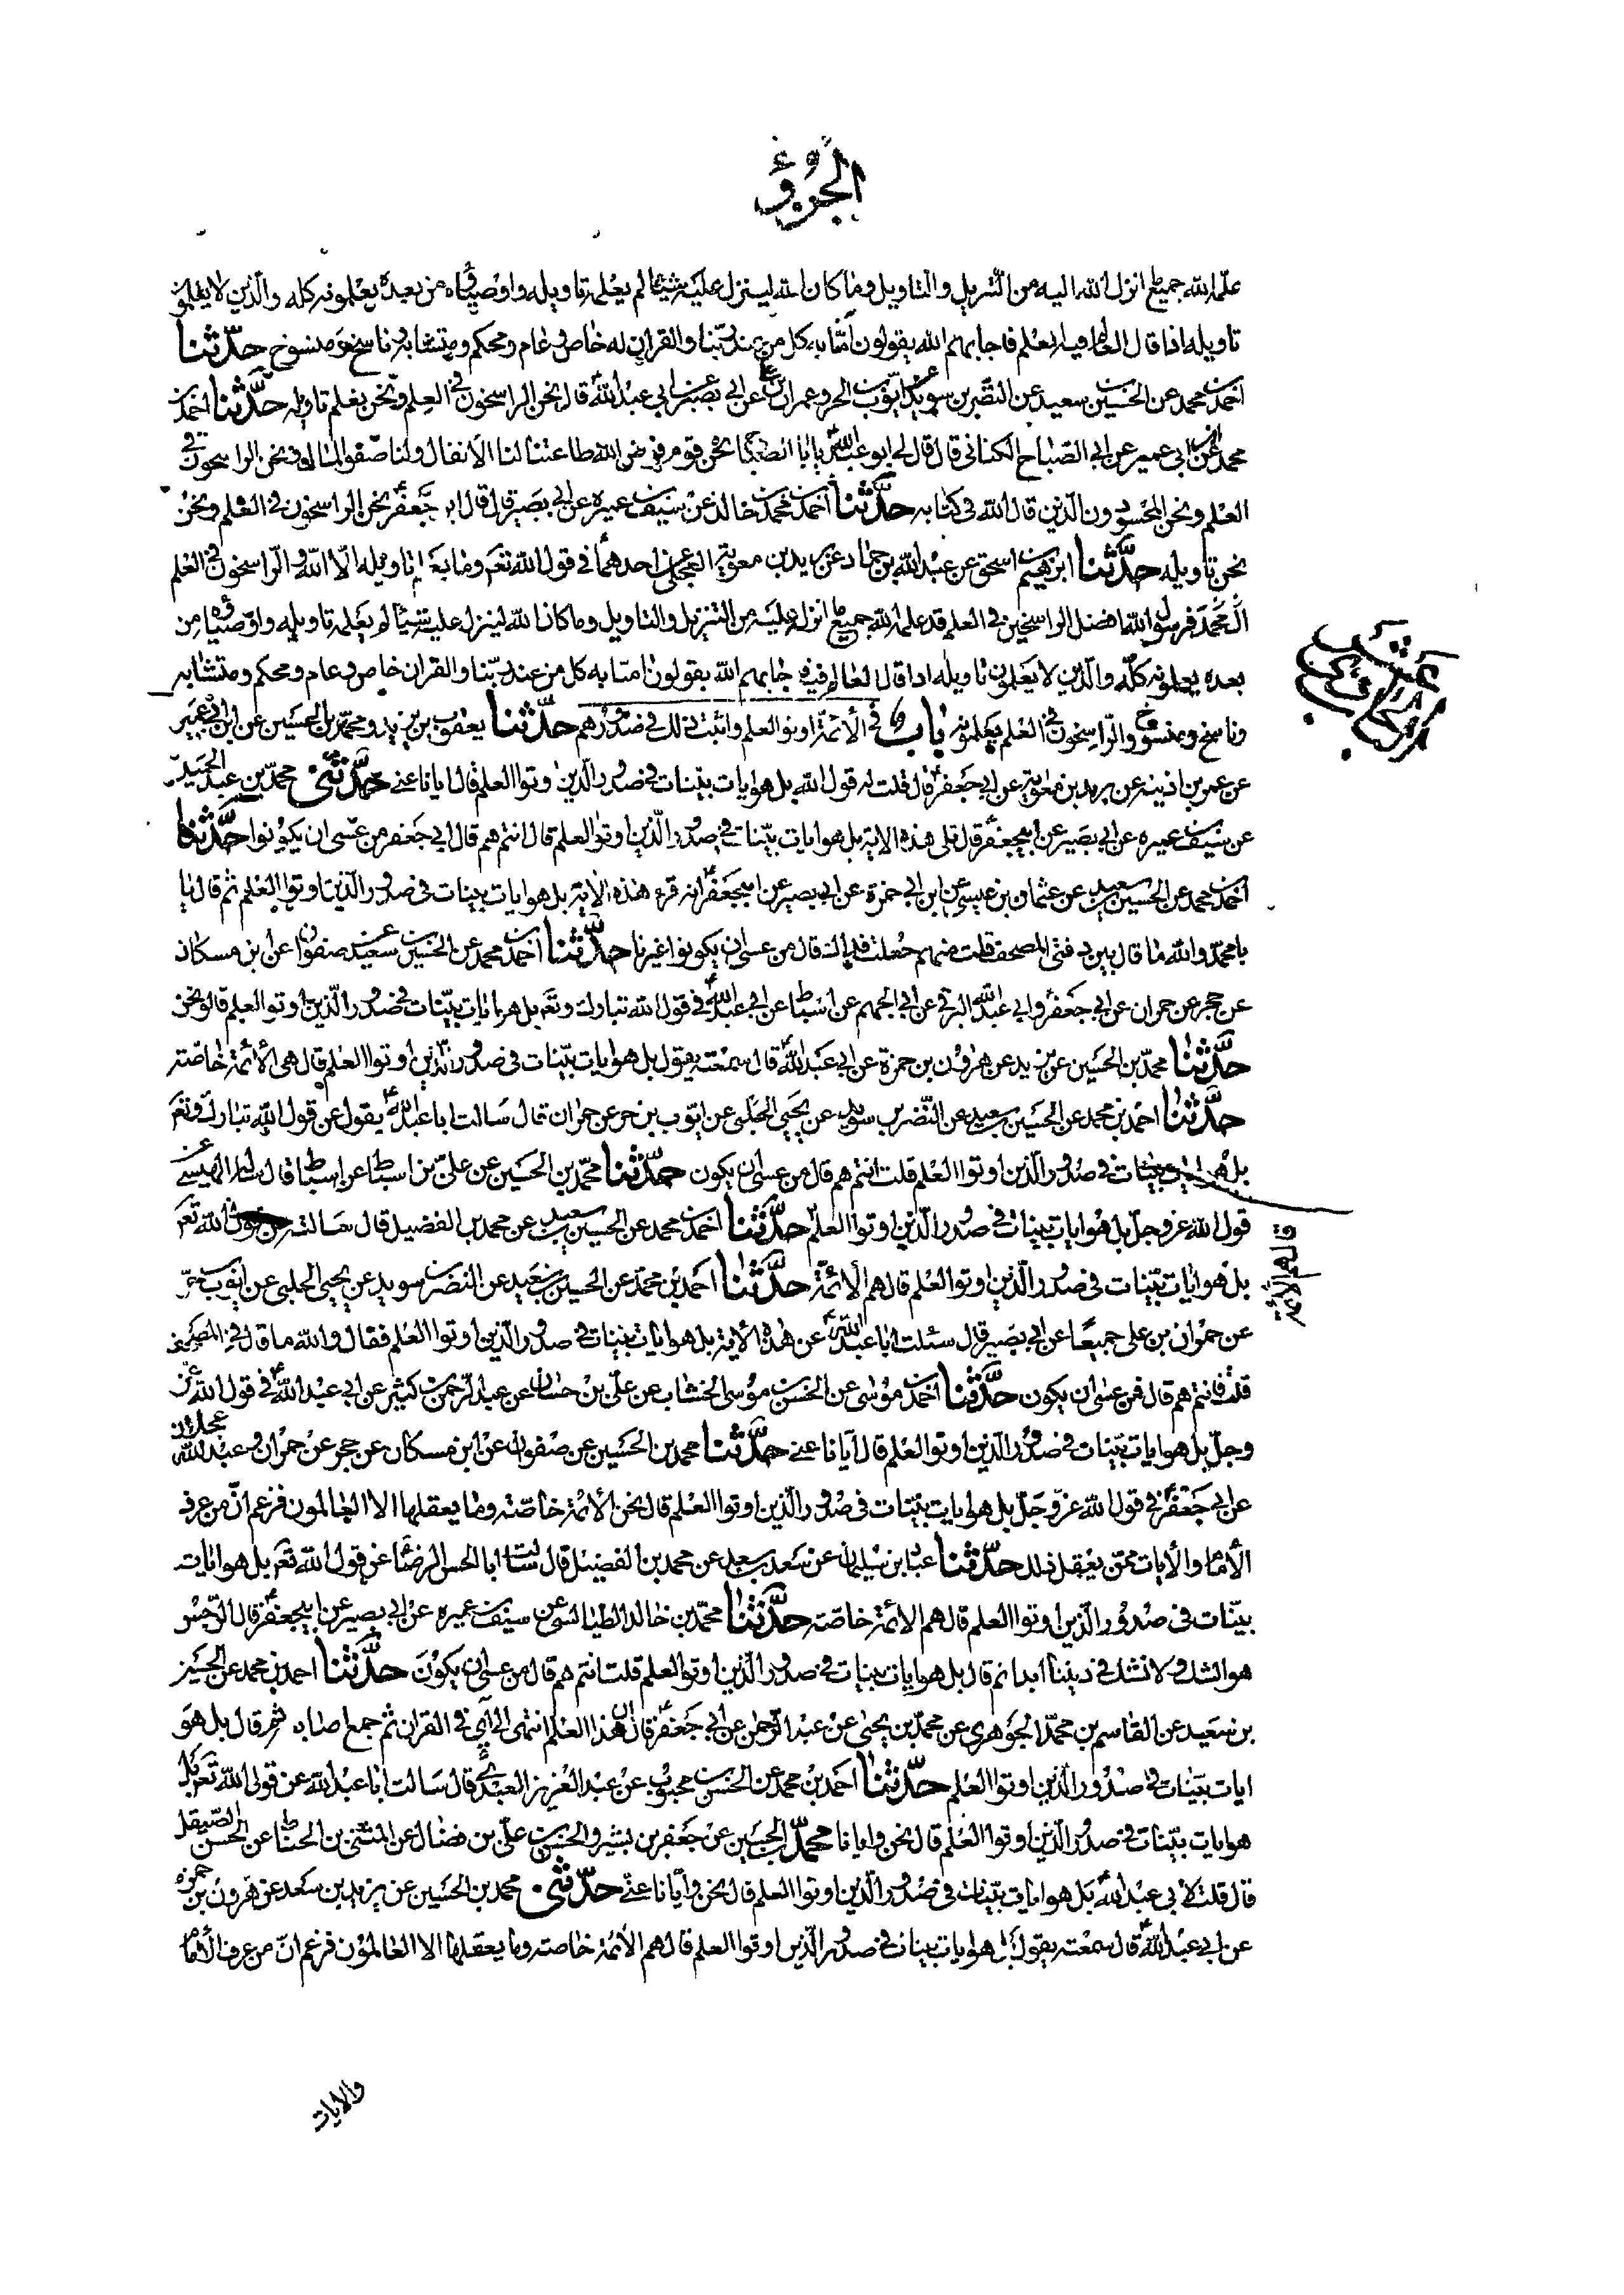 الجزؤ
علمه الله جميع ما انزل الله اليه من التنزيل والتاويل وما كان الله لينزل عليه شيئا لم يعلمه تاويله واوصيائه من بعده يعلمونه كله والذين لا يعلمون
تاويله اذا قال العالم فيه بعلم فاجابهم الله يقولون آمنا به كل من عند ربنا والقران له خاص وعام ومحكم ومتشابه وناسخ ومنسوخ حدثنا
احمد بن محمد عن الحسين بن سعيد عن النضر بن سويد عن ايوب بن الحر وعمران بن علي عن ابي بصير عن ابي عبد الله ع قال نحن الراسخون في العلم ونحن نعلم تاويله حدثنا احمد بن
محمد عن ابن ابي عمير عن ابي الصباح الكناني قال قال لي ابو عبد الله ع يا ابا الصباح نحن قوم فرض الله طاعتنا لنا الانفال ولنا صفو المال ونحن الراسخون في
العلم ونحن المحسودون الذين قال الله في كتابه حدثنا احمد بن محمد بن خالد عن سيف بن عميره عن ابي بصير قال قال ابو جعفر ع نحن الراسخون في العلم ونحن
نحن تاويله حدثنا ابرهيم بن اسحق عن عبد الله بن حماد عن بريد بن معوية العجلي عن احدهما في قول الله تعم وما يعلم تاويله الا الله والراسخون في العلم
ال محمد فرسول الله افضل الراسخين في العلم قد علمه الله جميع ما انزل عليه من التنزيل والتاويل وما كان الله لينزل عليه شيئا لم يعلمه تاويله واوصيائه من
بعده يعلمونه كله والذين لا يعلمون تاويله اذا قال العالم فيه فاجابهم الله يقولون امنا به كل من عند ربنا والقران خاص وعام ومحكم ومتشابه
وناسخ ومنسوخ والراسخون في العلم يعلمونه باب في الائمة اوتوا العلم واثبت ذلك في صدورهم حدثنا يعقوب بن يزيد ومحمد بن الحسين عن ابن ابي عمير
عن عمر بن اذينه عن بريد بن معوية عن ابي جعفر ع قال قلت له قول الله بل هو ايات بينات في صدور الذين اوتوا العلم قال ايانا عنى حدثني محمد بن عبد الحميد
عن سيف بن عميره عن ابي بصير عن ابيجعفر ع قال تلى هذه الاية بل هو ايات بينات في صدور الذين اوتوا العلم قال انتم هم قال ابي جعفر من عسى ان يكونوا حدثنا
احمد بن محمد عن الحسين بن سعيد عن عثمان بن عيسى عن ابن ابي حمزة عن ابي بصير عن ابيجعفر ع انه قرء هذه الاية بل هو ايات بينات في صدور الذين اوتوا العلم ثم قال يا
با محمد والله ما قال بين دفتي المصحف قلت من هم جعلت فداك قال من عسى ان يكونوا غيرنا حدثنا احمد بن محمد عن الحسين بن سعيد عن صفوان عن ابن مسكان
عن حجر عن حمران عن ابي جعفر ع وابي عبد الله البرقي عن ابي الجهم عن اسباط عن ابي عبد الله ع في قول الله تبارك وتعم بل هو ايات بينات في صدور الذين اوتوا العلم قال نحن
حدثنا محمد بن الحسين عن يزيد عن هرون بن حمزة عن ابي عبد الله ع قال سمعته يقول بل هو ايات بينات في صدور الذين اوتوا العلم قال هي الائمة خاصة
حدثنا احمد بن محمد عن الحسين بن سعيد عن النضر بن سويد عن يحيى الحلبي عن ايوب بن حر عن حمران قال سالت ابا عبد الله ع يقول عن قول الله تبارك وتعم
بل هو ايات بينات في صدور الذين اوتوا العلم قلت انتم هم قال من عسى ان يكون حدثنا محمد بن الحسين عن علي بن اسباط عن اسباط قال ساله الهيتي عن
قول الله عز وجل بل هو ايات بينات في صدور الذين اوتوا العلم حدثنا احمد بن محمد عن الحسين بن سعيد عن محمد بن الفضيل قال سالته عن قول الله تعم
بل هو ايات بينات في صدور الذين اوتوا العلم قال هم الائمة حدثنا احمد بن محمد عن الحسين بن سعيد عن النضر بن سويد عن يحيى الحلبي عن ايوب بن حر
عن حمران بن علي جميعا عن ابي بصير قال سئلت ابا عبد الله ع عن هذه الاية بل هو ايات بينات في صدور الذين اوتوا العلم فقال والله ما قال في المصحف
قلت فانتم هم قال فمن عسى ان يكون حدثنا احمد بن موسى عن الحسن بن موسى الخشاب عن علي بن حسان عن عبد الرحمن بن كثير عن ابي عبد الله ع في قول الله عز
وجل بل هو ايات بينات في صدور الذين اوتوا العلم قال ايانا عنى حدثنا محمد بن الحسين عن صفوان عن ابن مسكان عن حجر عن حمران وعبد الله عجلان
عن ابي جعفر ع في قول الله عز وجل بل هو ايات بينات في صدور الذين اوتوا العلم قال نحن الائمة خاصة وما يعقلها الا العالمون فزعم ان من عرف
الامام والايات ممن يعقل ذلك حدثنا عباد بن سليمان عن سعد بن سعد عن محمد بن الفضيل قال سالت ابا الحسن الرضا ع عن قول الله تعم بل هو ايات
بينات في صدور الذين اوتوا العلم قال هم الائمة خاصة حدثنا محمد بن خالد الطيالسي عن سيف بن عميره عن ابي بصير عن ابيجعفر ع قال الرجس
هو الشك ولا نشك في ديننا ابدا ثم قال بل هو ايات بينات في صدور الذين اوتوا العلم قلت انتم هم قال من عسى ان يكون حدثنا احمد بن محمد عن الحسين
بن سعيد عن القاسم بن محمد الجوهري عن محمد بن يحيى عن عبد الرحمن عن ابي جعفر ع قال ان هذا العلم انتهى الى آي في القران ثم جمع اصابعه ثم قال بل هو
ايات بينات في صدور الذين اوتوا العلم حدثنا احمد بن محمد عن الحسن بن محبوب عن عبد العزيز العبدي قال سالت ابا عبد الله عن قول الله تعم بل
هو ايات بينات في صدور الذين اوتوا العلم قال نحن وايانا محمد بن الحسين عن جعفر بن بشير والحسن بن علي بن فضال عن المثنى بن الحناط عن الحسن الصيقل
قال قلت لابي عبد الله ع بل هو ايات بينات في صدور الذين اوتوا العلم قال نحن وايانا عنى حدثني محمد بن الحسين عن يزيد بن سعد عن هرون بن حمزه
عن ابي عبد الله ع قال سمعته يقول بل هو ايات بينات في صدور الذين اوتوا العلم قال هم الائمة خاصة وما يعقلها الا العالمون فزعم ان من عرف الامام
قال هم الائمة
والايات